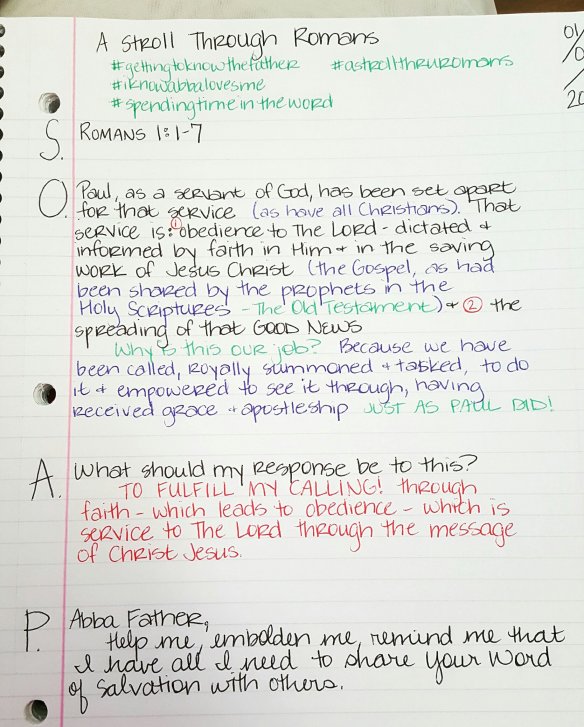 A Stroll Through Romans
#gettingtoknowthefather #astrollthruromans
#iknowabbalovesme
#spendingtimeintheword
01
20
S. Romans 1:1-7
O. Paul, as a servant of God, has been set apart
for that service (as have all Christians). That
service is: ① obedience to The Lord - dictated +
informed by faith in Him + in the saving
work of Jesus Christ (the Gospel, as had
been shared by the prophets in the
Holy Scriptures - The Old Testament) + ② the
spreading of that GOOD NEWS
Why is this our job? Because we have
been called, royally summoned + tasked, to do
it + empowered to see it through, having
received grace + apostleship JUST AS PAUL DID!
A. What should my response be to this?
TO FULFILL MY CALLING! through
faith - which leads to obedience - which is
service to The Lord through the message
of Christ Jesus.
P. Abba Father,
Help me, embolden me, remind me that
I have all I need to share Your Word
of Salvation with others.